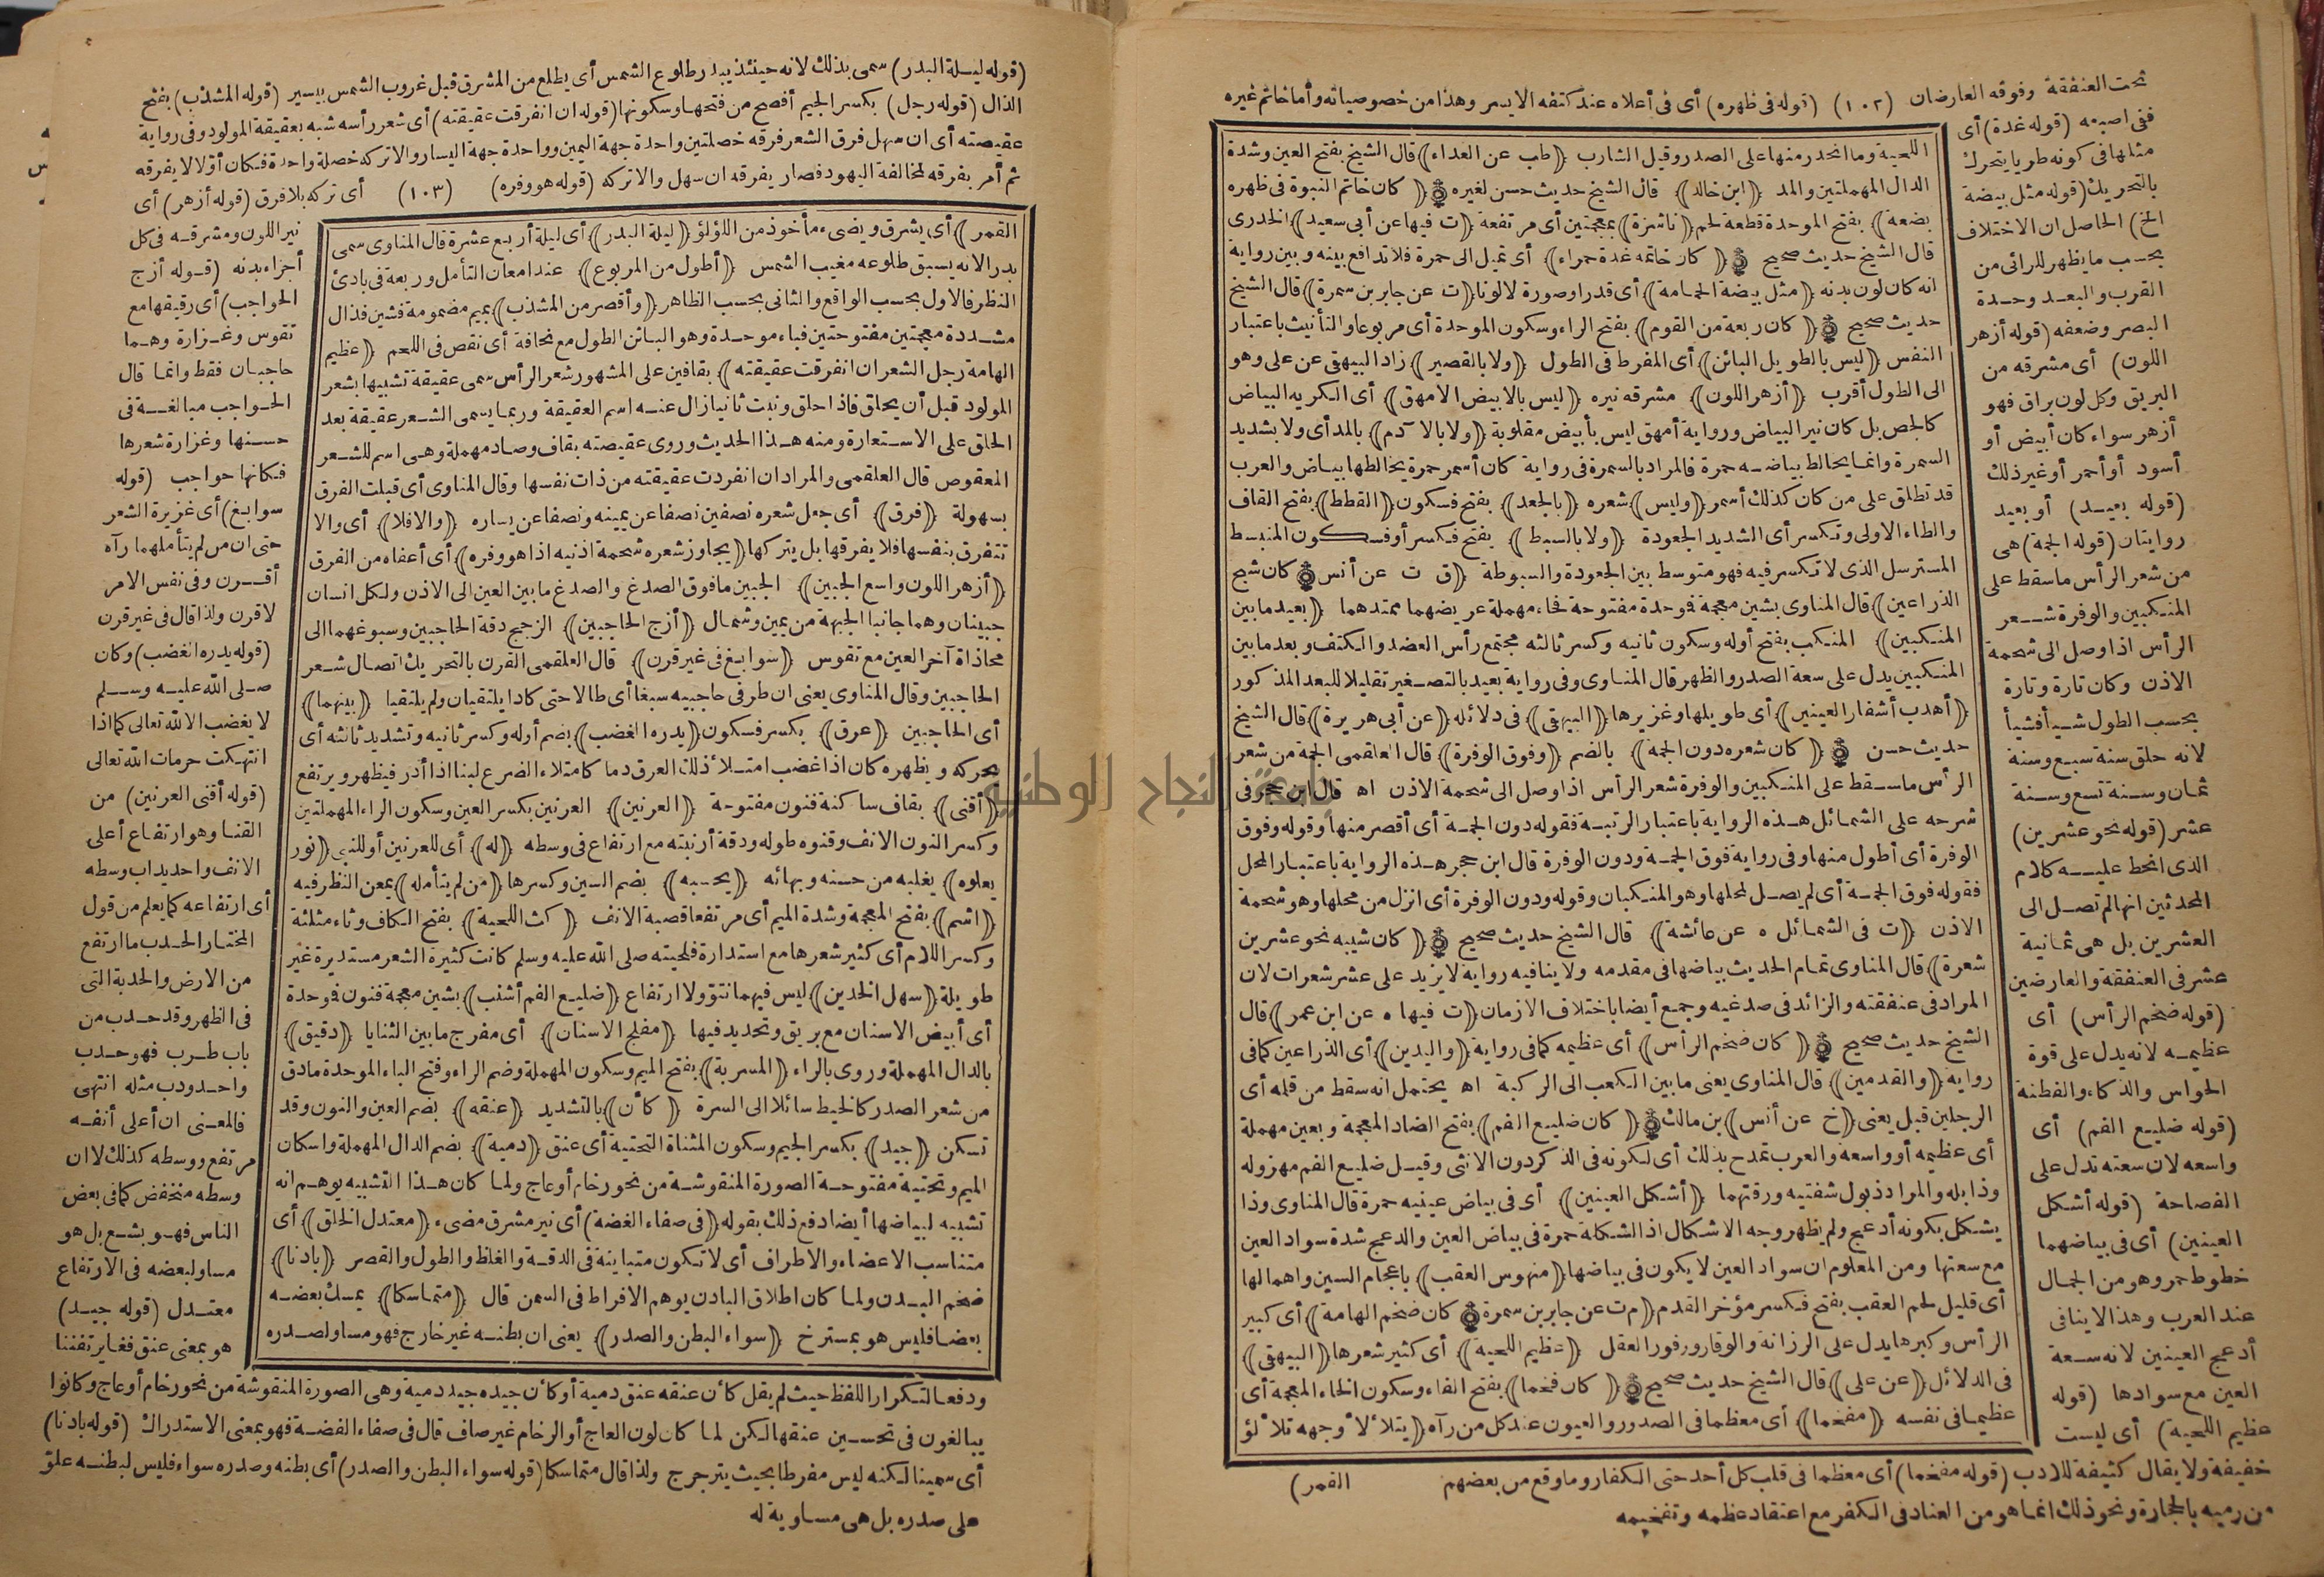 تحت العنفقة وفوقه العارضان (١٠٢) (قوله فى ظهره) أى فى أعلاه عند كتفه الايسر وهذا من خصوصياته وأما خاتم غيره
ففى اصبعه (قوله غدة) أى
مثلها فى كونه طريا يتحرك
بالتحريك (قوله مثل بيضة
الخ) الحاصل ان الاختلاف
بحسب ما يظهر للرائى من
القرب والبعد وحدة
البصر وضعفه (قوله أزهر
اللون) أى مشرقه من
البريق وكل لون براق فهو
أزهر سواء كان أبيض أو
أسود أو أحمر أو غير ذلك
(قوله بعيد) أو بعيد
روايتان (قوله الجمة) هى
من شعر الرأس ما سقط على
المنكبين والوفرة شعر
الرأس اذا وصل الى شحمة
الاذن وكان تارة وتارة
بحسب الطول شيأ فشيأ
لانه حلق سنة سبع وسنة
ثمان وسنة تسع وسنة
عشر (قوله نحو عشرين)
الذى انحط عليه كلام
المحدثين انها لم تصل الى
العشرين بل هى ثمانية
عشر فى العنفقة والعارضين
(قوله ضخم الرأس) أى
عظيمه لانه يدل على قوة
الحواس والذكاء والفطنة
(قوله ضليع الفم) أى
واسعه لان سعته تدل على
الفصاحة (قوله أشكل
العينين) أى فى بياضهما
خطوط حمر وهو من الجمال
عند العرب وهذا لا ينافى
أدعج العينين لانه سعة
العين مع سوادها (قوله
عظيم اللحية) أى ليست
خفيفة ولا يقال كثيفة للادب (قوله مفخما) أى معظما فى قلب كل أحد حتى الكفار وما وقع من بعضهم
من رميه بالحجارة ونحو ذلك انما هو من العناد فى الكفر مع اعتقاد عظمه وتفخيمه
اللحية وما انحدر منها على الصدر وقيل الشارب ﴿طب عن العداء﴾ قال الشيخ بفتح العين وشدة
الدال المهملتين والمد ﴿ابن خالد﴾ قال الشيخ حديث حسن لغيره ﴿كان خاتم النبوة فى ظهره
بضعة﴾ بفتح الموحدة قطعة لحم ﴿ناشزة﴾ بمعجمتين أى مرتفعة ﴿ت فيها عن أبى سعيد﴾ الخدرى
قال الشيخ حديث صحيح ﴿كان خاتمه غدة حمراء﴾ أى تميل الى حمرة فلا تدافع بينه وبين رواية
انه كان لون بدنه ﴿مثل بيضة الحمامة﴾ أى قدرا وصورة لا لونا ﴿ت عن جابر بن سمرة﴾ قال الشيخ
حديث صحيح ﴿كان ربعة من القوم﴾ بفتح الراء وسكون الموحدة أى مربوعا والتأنيث باعتبار
النفس ﴿ليس بالطويل البائن﴾ أى المفرط فى الطول ﴿ولا بالقصير﴾ زاد البيهقى عن على وهو
الى الطول أقرب ﴿أزهر اللون﴾ مشرقه نيره ﴿ليس بالابيض الامهق﴾ أى الكريه البياض
كالجص بل كان نير البياض ورواية أمهق ليس بأبيض مقلوبة ﴿ولا بالآدم﴾ بالمد أى ولا بشديد
السمرة وانما يخالط بياضه حمرة فالمراد بالسمرة فى رواية كان أسمر حمرة يخالطها بياض والعرب
قد تطلق على من كان كذلك أسمر ﴿وليس﴾ شعره ﴿بالجعد﴾ بفتح فسكون ﴿القطط﴾ بفتح القاف
والطاء الاولى وتكسر أى الشديد الجعودة ﴿ولا بالسبط﴾ بفتح فكسر أو فسكون المنبسط
المسترسل الذى لا تكسر فيه فهو متوسط بين الجعودة والسبوطة ﴿ق ت عن أنس كان شبح
الذراعين﴾ قال المناوى بشين معجمة فوحدة مفتوحة فحاء مهملة عريضهما ممتدهما ﴿بعيد ما بين
المنكبين﴾ المنكب بفتح أوله وسكون ثانيه وكسر ثالثه مجتمع رأس العضد والكتف وبعد ما بين
المنكبين يدل على سعة الصدر والظهر قال المناوى وفى رواية بعيد بالتصغير تقليلا للبعد المذكور
﴿أهدب أشفار العينين﴾ أى طويلها وغزيرها ﴿البيهقى﴾ فى دلائله ﴿عن أبى هريرة﴾ قال الشيخ
حديث حسن ﴿كان شعره دون الجمة﴾ بالضم ﴿وفوق الوفرة﴾ قال العلقمى الجمة من شعر
الرأس ما سقط على المنكبين والوفرة شعر الرأس اذا وصل الى شحمة الاذن اه قال ابن حجر فى
شرحه على الشمائل هذه الرواية باعتبار الرتبة فقوله دون الجمة أى أقصر منها وقوله وفوق
الوفرة أى أطول منها وفى رواية فوق الجمة ودون الوفرة قال ابن حجر هذه الرواية باعتبار المحل
فقوله فوق الجمة أى لم يصل لمحلها وهو المنكبان وقوله ودون الوفرة أى انزل من محلها وهو شحمة
الاذن ﴿ت فى الشمائل ه عن عائشة﴾ قال الشيخ حديث صحيح ﴿كان شيبه نحو عشرين
شعرة﴾ قال المناوى تمام الحديث بياضها فى مقدمه ولا ينافيه رواية لا يزيد على عشر شعرات لان
المراد فى عنفقته والزائد فى صدغيه وجمع أيضا باختلاف الازمان ﴿ت فيها ه عن ابن عمر﴾ قال
الشيخ حديث صحيح ﴿كان ضخم الرأس﴾ أى عظيمه كما فى رواية ﴿واليدين﴾ أى الذراعين كما فى
رواية ﴿والقدمين﴾ قال المناوى يعنى ما بين الكعب الى الركبة اه يحتمل انه سقط من قلمه أى
الرجلين قبل يعنى ﴿خ عن أنس﴾ بن مالك ﴿كان ضليع الفم﴾ بفتح الضاد المعجمة وبعين مهملة
أى عظيمه أو واسعه والعرب تمدح بذلك أى لكونه فى الذكر دون الانثى وقيل ضليع الفم مهزوله
وذابله والمراد ذبول شفتيه ورقتهما ﴿أشكل العينين﴾ أى فى بياض عينيه حمرة قال المناوى وذا
يشكل بكونه أدعج ولم يظهر وجه الاشكال اذ الشكلة حمرة فى بياض العين والدعج شدة سواد العين
مع سعتها ومن المعلوم ان سواد العين لا يكون فى بياضها ﴿منهوس العقب﴾ باعجام السين واهمالها
أى قليل لحم العقب بفتح فكسر مؤخر القدم ﴿م ت عن جابر بن سمرة كان ضخم الهامة﴾ أى كبير
الرأس وكبرها يدل على الرزانة والوقار ورفور العقل ﴿عظيم اللحية﴾ أى كثير شعرها ﴿البيهقى﴾
فى الدلائل ﴿عن على﴾ قال الشيخ حديث صحيح ﴿كان فخما﴾ بفتح الفاء وسكون الخاء المعجمة أى
عظيما فى نفسه ﴿مفخما﴾ أى معظما فى الصدور والعيون عند كل من رآه ﴿يتلألأ وجهه تلألؤ
القمر﴾
جامعة النجاح الوطنية
(قوله ليلة البدر) سمى بذلك لانه حينئذ يبدر طلوع الشمس أى يطلع من المشرق قبل غروب الشمس بيسير (قوله المشذب) بفتح
الذال (قوله رجل) بكسر الجيم أفصح من فتحها وسكونها (قوله ان انفرقت عقيقته) أى شعر رأسه شبه بعقيقة المولود وفى رواية
عقيصته أى ان سهل فرق الشعر فرقه خصلتين واحدة جهة اليمين وواحدة جهة اليسار والا تركه خصلة واحدة فكان أولا لا يفرقه
ثم أمر بفرقه لمخالفة اليهود فصار يفرقه ان سهل والا تركه (قوله هو وفره) (١٠٣) أى تركه بلا فرق (قوله أزهر) أى
القمر﴾ أى يشرق ويضىء مأخوذ من اللؤلؤ ﴿ليلة البدر﴾ أى ليلة أربع عشرة قال المناوى سمى
بدرا لانه يسبق طلوعه مغيب الشمس ﴿أطول من المربوع﴾ عند امعان التأمل وربعة فى بادئ
النظر فالاول بحسب الواقع والثانى بحسب الظاهر ﴿وأقصر من المشذب﴾ بميم مضمومة فشين فذال
مشددة معجمتين مفتوحتين فباء موحدة وهو البائن الطول مع نحافة أى نقص فى اللحم ﴿عظيم
الهامة رجل الشعر ان انفرقت عقيقته﴾ بقافين على المشهور شعر الرأس سمى عقيقة تشبيها بشعر
المولود قبل أن يحلق فاذا حلق ونبت ثانيا زال عنه اسم العقيقة وربما يسمى الشعر عقيقة بعد
الحلق على الاستعارة ومنه هذا الحديث وروى عقيصته بقاف وصاد مهملة وهى اسم للشعر
المعقوص قال العلقمى والمراد ان انفردت عقيقته من ذات نفسها وقال المناوى أى قبلت الفرق
بسهولة ﴿فرق﴾ أى جعل شعره نصفين نصفا عن يمينه ونصفا عن يساره ﴿والا فلا﴾ أى والا
تتفرق بنفسها فلا يفرقها بل يتركها ﴿يجاوز شعره شحمة اذنيه اذا هو وفره﴾ أى أعفاه من الفرق
﴿أزهر اللون واسع الجبين﴾ الجبين ما فوق الصدغ والصدغ ما بين العين الى الاذن ولكل انسان
جبينان وهما جانبا الجبهة من يمين وشمال ﴿أزج الحاجبين﴾ الزجج دقة الحاجبين وسبوغهما الى
محاذاة آخر العين مع تقوس ﴿سوابغ فى غير قرن﴾ قال العلقمى القرن بالتحريك اتصال شعر
الحاجبين وقال المناوى يعنى ان طرفى حاجبيه سبغا أى طالا حتى كادا يلتقيان ولم يلتقيا ﴿بينهما﴾
أى الحاجبين ﴿عرق﴾ بكسر فسكون ﴿يدره الغضب﴾ بضم أوله وكسر ثانيه وتشديد ثالثه أى
يحركه ويظهره كان اذا غضب امتلأ ذلك العرق دما كامتلاء الضرع لبنا اذا أدر فيظهر ويرتفع
﴿أقنى﴾ بقاف ساكنة فنون مفتوحة ﴿العرنين﴾ العرنين بكسر العين وسكون الراء المهملتين
وكسر النون الانف وقنوه طوله ودقة أرنبته مع ارتفاع فى وسطه ﴿له﴾ أى للعرنين أو للنبى ﴿نور
يعلوه﴾ يغلبه من حسنه وبهائه ﴿يحسبه﴾ بضم السين وكسرها ﴿من لم يتأمله﴾ يمعن النظر فيه
﴿اشم﴾ بفتح المعجمة وشدة الميم أى مرتفعا قصبة الانف ﴿كث اللحية﴾ بفتح الكاف وثاء مثلثة
وكسر اللام أى كثير شعرها مع استدارة فلحيته صلى الله عليه وسلم كانت كثيرة الشعر مستديرة غير
طويلة ﴿سهل الخدين﴾ ليس فيهما نتوّ ولا ارتفاع ﴿ضليع الفم أشنب﴾ بشين معجمة فنون فوحدة
أى أبيض الاسنان مع بريق وتحديد فيها ﴿مفلج الاسنان﴾ أى مفرج ما بين الثنايا ﴿دقيق﴾
بالدال المهملة وروى بالراء ﴿المسربة﴾ بفتح الميم وسكون المهملة وضم الراء وفتح الباء الموحدة مادق
من شعر الصدر كالخيط سائلا الى السرة ﴿كأن﴾ بالتشديد ﴿عنقه﴾ بضم العين والنون وقد
تسكن ﴿جيد﴾ بكسر الجيم وسكون المثناة التحتية أى عنق ﴿دمية﴾ بضم الدال المهملة واسكان
الميم وتحتية مفتوحة الصورة المنقوشة من نحو رخام أو عاج ولما كان هذا التشبيه يوهم انه
تشبيه لبياضها أيضا دفع ذلك بقوله ﴿فى صفاء الفضة﴾ أى نير مشرق مضىء ﴿معتدل الخلق﴾ أى
متناسب الاعضاء والاطراف أى لا تكون متباينة فى الدقة والغلظ والطول والقصر ﴿بادنا﴾
ضخم البدن ولما كان اطلاق البادن يوهم الافراط فى السمن قال ﴿متماسكا﴾ يمسك بعضه
بعضا فليس هو بمسترخ ﴿سواء البطن والصدر﴾ يعنى ان بطنه غير خارج فهو مساو لصدره
نير اللون ومشرقه فى كل
أجزاء بدنه (قوله أزج
الحواجب) أى رقيقها مع
تقوس وغزارة وهما
حاجبان فقط وانما قال
الحواجب مبالغة فى
حسنها وغزارة شعرها
فكانها حواجب (قوله
سوابغ) أى غزيرة الشعر
حتى ان من لم يتأملهما رآه
أقرن وفى نفس الامر
لا قرن ولذا قال فى غير قرن
(قوله يدره الغضب) وكان
صلى الله عليه وسلم
لا يغضب الا لله تعالى كما اذا
انتهكت حرمات الله تعالى
(قوله أقنى العرنين) من
القنا وهو ارتفاع أعلى
الانف واحديداب وسطه
أى ارتفاعه كما يعلم من قول
المختار الحدب ما ارتفع
من الارض والحدبة التى
فى الظهر وقد حدب من
باب طرب فهو حدب
واحدودب مثله انتهى
فالمعنى ان أعلى أنفه
مرتفع ووسطه كذلك لا ان
وسطه منخفض كما فى بعض
الناس فهو بشع بل هو
مساو لبعضه فى الارتفاع
معتدل (قوله جيد)
هو بمعنى عنق فغاير تفننا
ودفعا لتكرار اللفظ حيث لم يقل كأن عنقه عنق دمية أو كأن جيده جيد دمية وهى الصورة المنقوشة من نحو رخام أو عاج وكانوا
يبالغون فى تحسين عنقها لكن لما كان لون العاج أو الرخام غير صاف قال فى صفاء الفضة فهو بمعنى الاستدراك (قوله بادنا)
أى سمينا لكنه ليس مفرطا بحيث يترجرج ولذا قال متماسكا (قوله سواء البطن والصدر) أى بطنه وصدره سواء فليس لبطنه علوّ
على صدره بل هى مساوية له